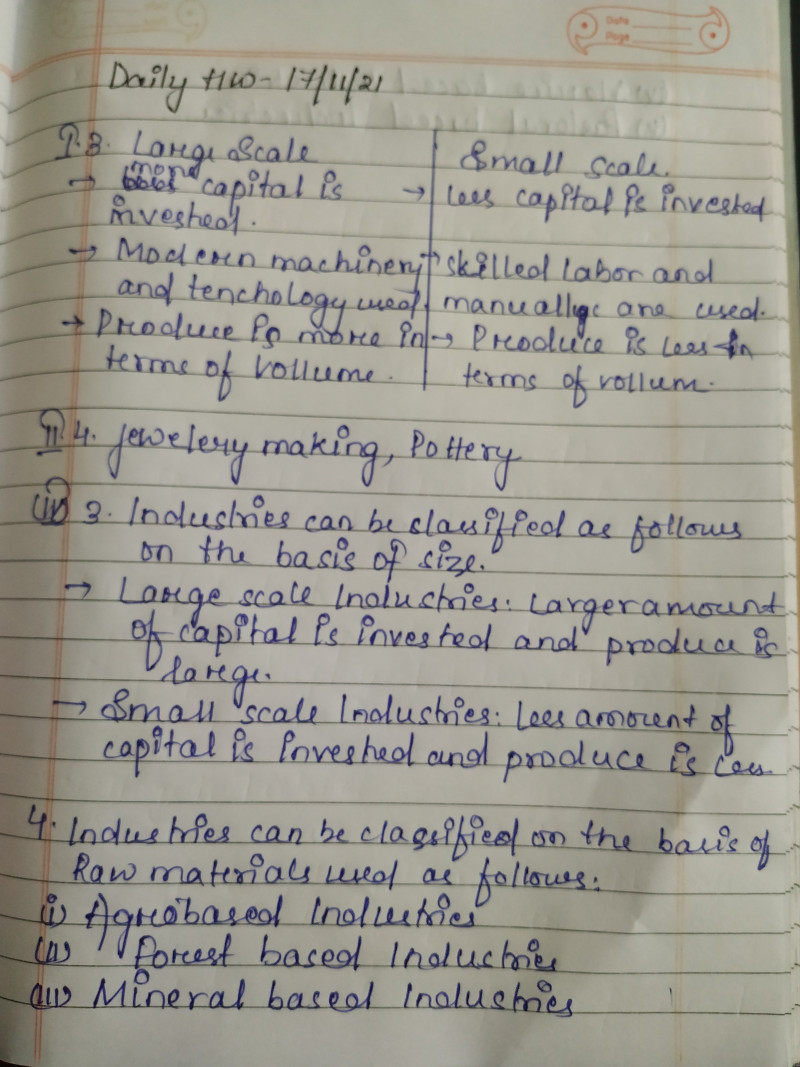 Date
Page
Daily HW - 17/11/21
I. 3. Large Scale | Small scale.
→ more capital is | → less capital is invested
invested.
→ Modern machinery | → skilled labor and
and tenchology used. | manually are used.
→ Produce is more in | → Produce is less in
terms of vollume. | terms of vollum.
II. 4. Jewelery making, Pottery
3. Industries can be classified as follows
on the basis of size.
→ Large scale Industries: Larger amount
of capital is invested and produce is
large.
→ Small scale Industries: Less amount of
capital is invested and produce is less
4. Industries can be classified on the basis of
Raw materials used as follows:
(i) Agrobased Industries
(ii) Forest based Industries
(iii) Mineral based Industries